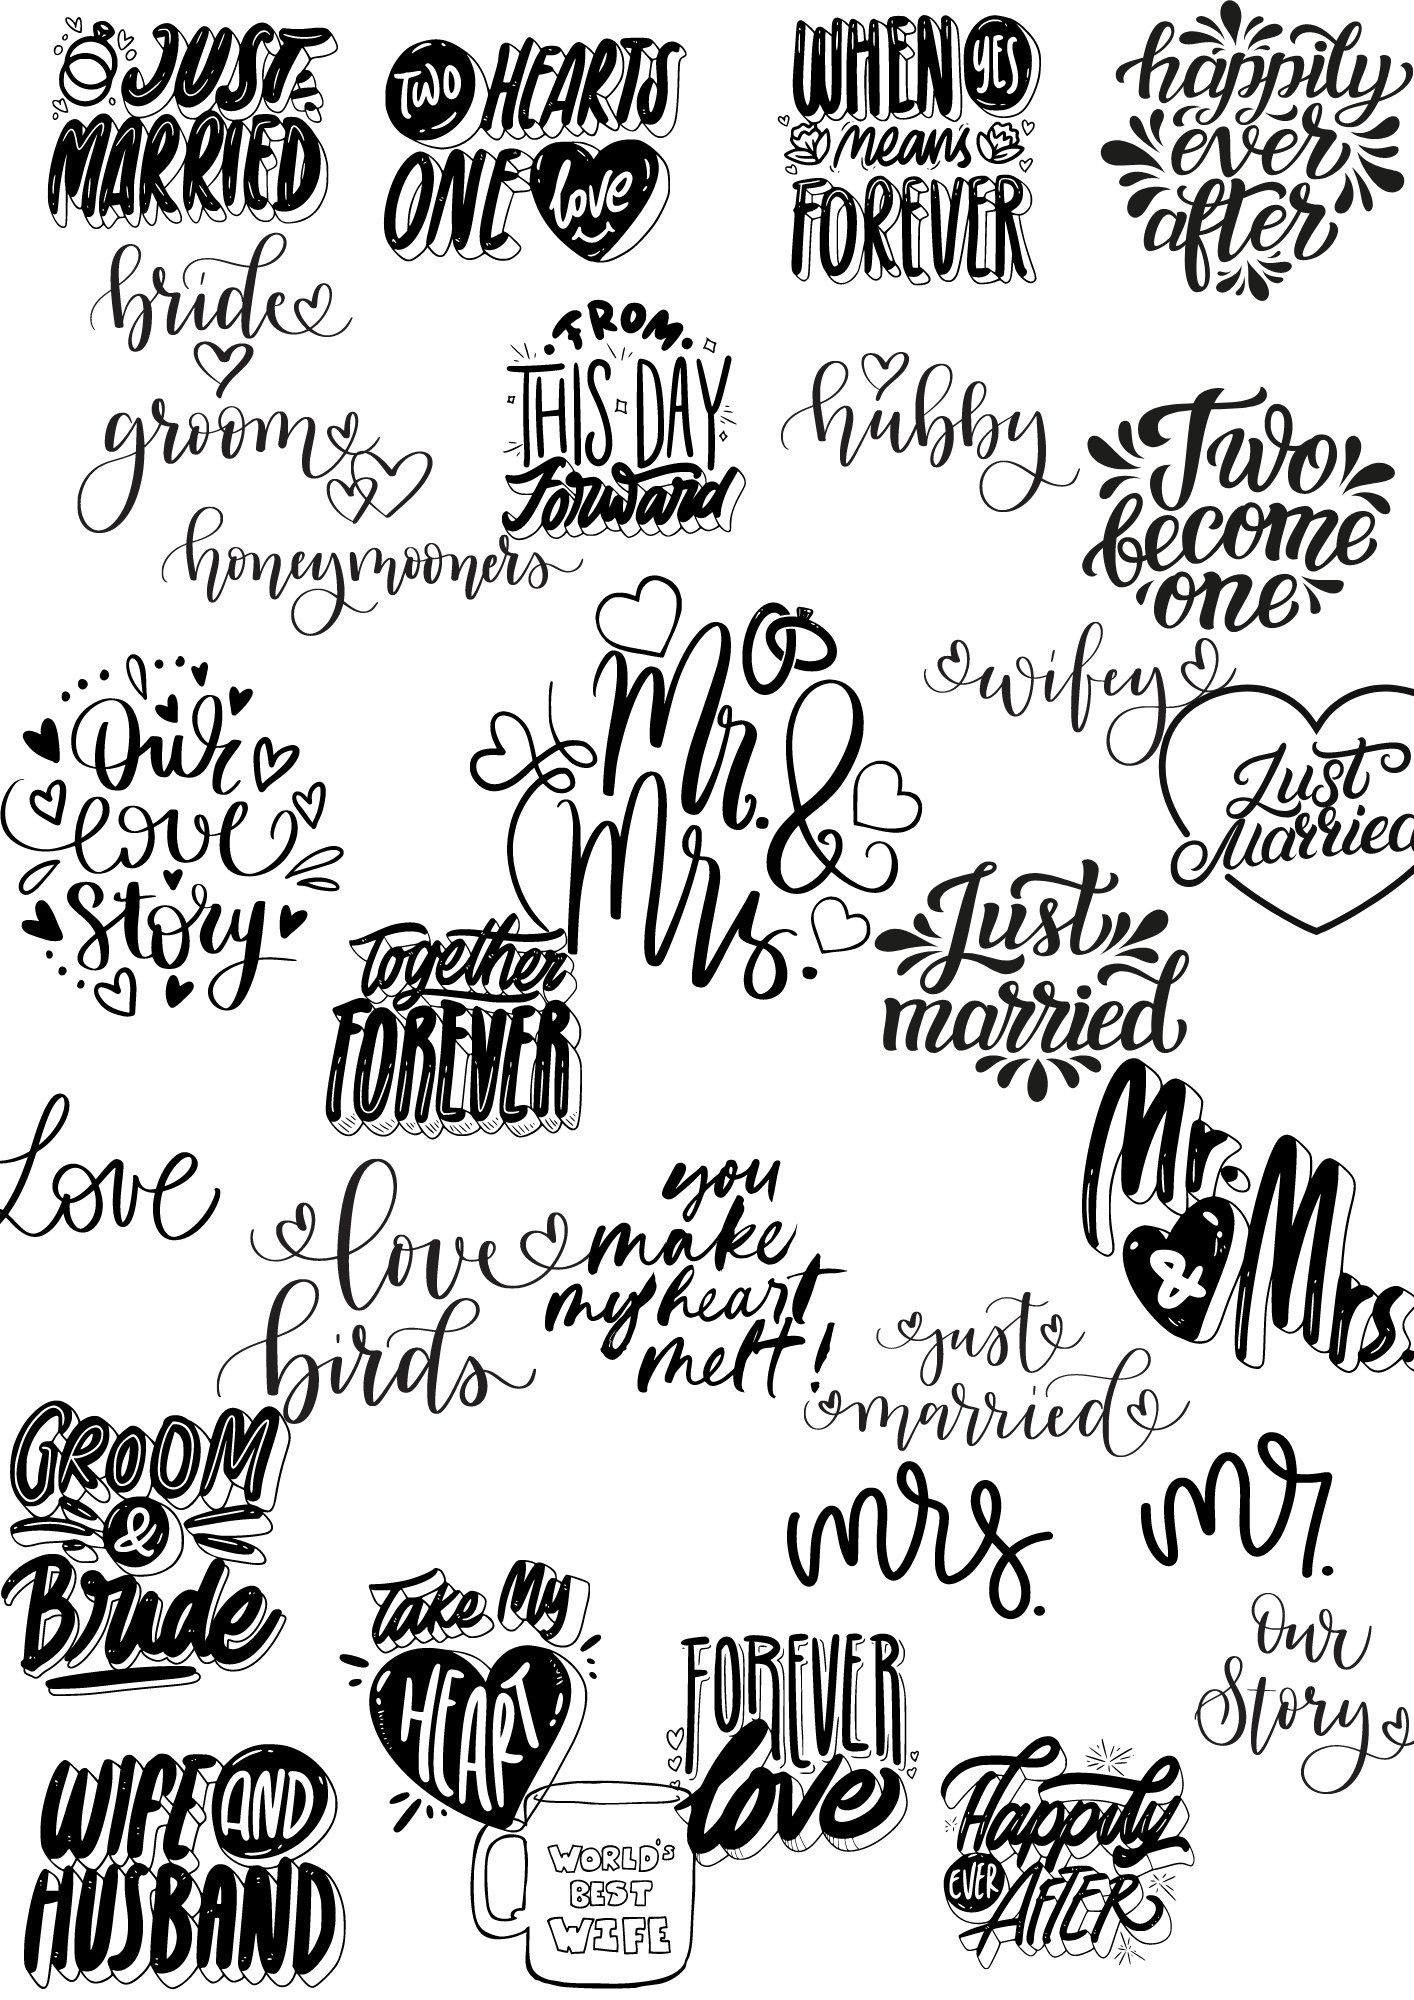 JUST
MARRIED
TWO HEARTS
ONE love
WHEN YES
means
FOREVER
happily
ever
after
bride
groom
honeymooners
.FROM.
THIS DAY
Forward
hubby
Two
become
one
wifey
Our
love
Story
Mr.
&
Mrs.
Just
Married
Together
FOREVER
Just
married
Mr.
& Mrs.
Love
love
birds
you
make
my heart
melt!
just
married
GROOM
&
Bride
mrs.
mr.
Our
Story
Take My
HEART
FOREVER
love
WIFE AND
HUSBAND
WORLD'S
BEST
WIFE
Happily
EVER AFTER